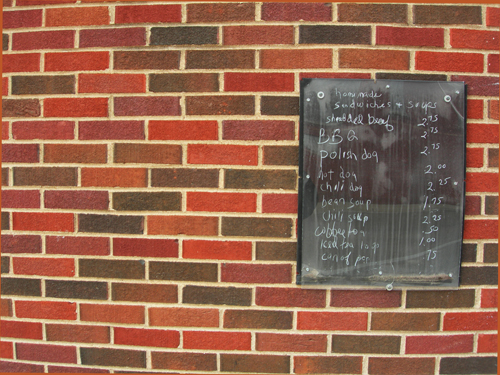 homemade
sandwiches + soups
shredded beef 2.75
BBQ 2.75
polish dog 2.75
hot dog 2.00
chili dog 2.25
bean soup 1.75
chili soup 2.25
coffee .50
iced tea 1.00
can of pop .75